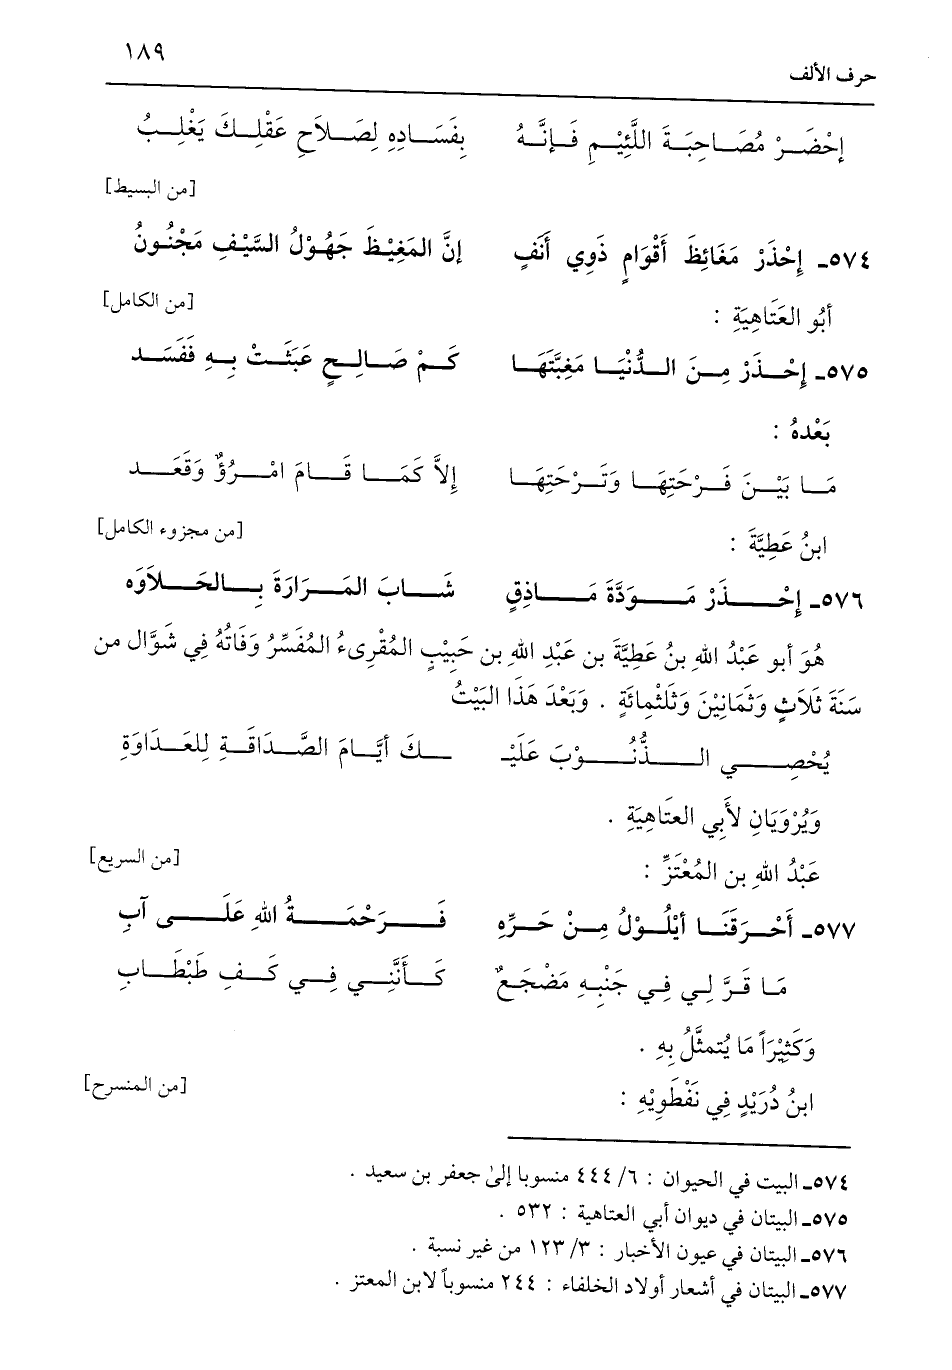 ١٨٩
حرف الألف
إِحْضَـرْ مُصَـاحِبَةَ اللَّئِيْـمِ فَـإِنَّـهُ بِفَسَـادِهِ لِصَـلاَحِ عَقْلِـكَ يَغْلِـبُ
[من البسيط]
٥٧٤ـ إِحْذَرْ مَغَائِظَ أَقْوَامٍ ذَوِي أَنَفٍ إِنَّ المَغِيْـظَ جَهُوْلُ السَّيْـفِ مَجْنُـونُ
[من الكامل]
أبُو العَتَاهِيَةِ :
٥٧٥ـ إِحْـذَرْ مِـنَ الـدُّنْيَـا مَغِبَّتَهَـا كَـمْ صَـالِـحٍ عَبَثَـتْ بِـهِ فَفَسَـد
بَعْدهُ :
مَـا بَيْـنَ فَـرْحَتِهَـا وَتَـرْحَتِهَـا إِلاَّ كَمَـا قَـامَ امْـرُؤٌ وَقَعَـد
[من مجزوء الكامل]
ابنُ عَطِيَّةَ :
٥٧٦ـ إِحْـذَرْ مَـوَدَّةَ مَـاذِقٍ شَـابَ المَـرَارَةَ بِـالحَـلاَوَه
هُوَ أبو عَبْدُ اللهِ بنُ عَطِيَّةَ بن عَبْدِ اللهِ بن حَبِيْبٍ المُقْرِىءُ المُفَسِّرُ وَفَاتُهُ فِي شَوَّال من
سَنَةَ ثَلَاثٍ وَثَمَانِيْنَ وَثَلثْمِائَةٍ . وَبَعْدَ هَذَا البَيْتُ
يُحْصِـي الـذُّنُـوْبَ عَلَيْـ ـكَ أيَّـامَ الصَّـدَاقَـةِ لِلعَـدَاوَةِ
وَيُرْوَيَانِ لأَبِي العتَاهِيَةِ .
[من السريع]
عَبْدُ اللهِ بن المُعْتَزِّ :
٥٧٧ـ أَحْـرَقَنَـا أيْلُـوْلُ مِـنْ حَـرِّهِ فَـرَحْمَـةُ اللهِ عَلَـى آبِ
مَـا قَـرَّ لِـي فِـي جَنْبِـهِ مَضْجَـعٌ كَـأنَّنِـي فِـي كَـفِ طَبْطَـابِ
وَكَثِيْرَاً مَا يُتمثَّلُ بِهِ .
[من المنسرح]
ابنُ دُرَيْدٍ فِي نَفْطَوِيْهِ :
٥٧٤ـ البيت في الحيوان : ٦/ ٤٤٤ منسوبا إلىٰ جعفر بن سعيد .
٥٧٥ـ البيتان في ديوان أبي العتاهية : ٥٣٢ .
٥٧٦ـ البيتان في عيون الأخبار : ٣/ ١٢٣ من غير نسبة .
٥٧٧ـ البيتان في أشعار أولاد الخلفاء : ٢٤٤ منسوباً لابن المعتز .